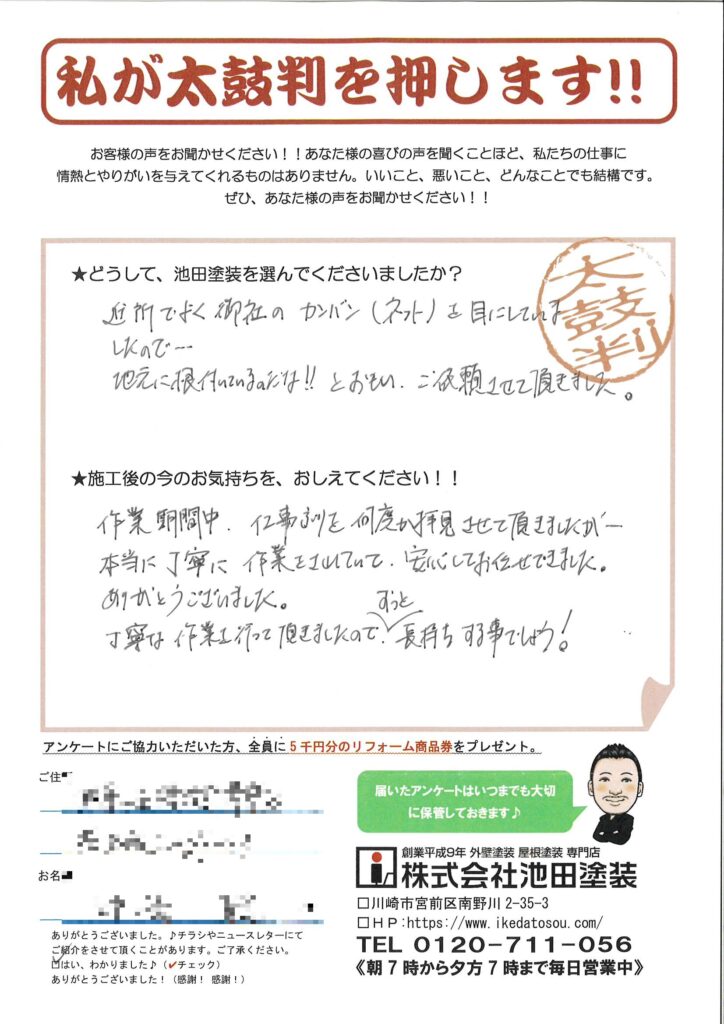 私が太鼓判を押します!!
お客様の声をお聞かせください！！あなた様の喜びの声を聞くことほど、私たちの仕事に
情熱とやりがいを与えてくれるものはありません。いいこと、悪いこと、どんなことでも結構です。
ぜひ、あなた様の声をお聞かせください！！
太鼓判
★どうして、池田塗装を選んでくださいましたか？
近所でよく御社のカンバン(ネット)を目にしていま
したので…
地元に根付いているのだな!!とおもい、ご依頼させて頂きました。
★施工後の今のお気持ちを、おしえてください！！
作業期間中、仕事ぶりを何度か拝見させて頂きましたが…
本当に丁寧に作業をされていて、安心してお任せできました。
ありがとうございました。
丁寧な作業を行って頂きましたので、ずっと長持ちする事でしょう!
アンケートにご協力いただいた方、全員に5千円分のリフォーム商品券をプレゼント。
ご住
お名
届いたアンケートはいつまでも大切
に保管しておきます♪
創業平成9年 外壁塗装 屋根塗装 専門店
株式会社池田塗装
□川崎市宮前区南野川2-35-3
□HP:https://www.ikedatosou.com/
TEL 0120-711-056
《朝7時から夕方7時まで毎日営業中》
ありがとうございました。♪チラシやニュースレターにて
ご紹介をさせて頂くことがあります。ご了承ください。
□はい、わかりました♪（✓チェック）
ありがとうございました！（感謝！感謝！）